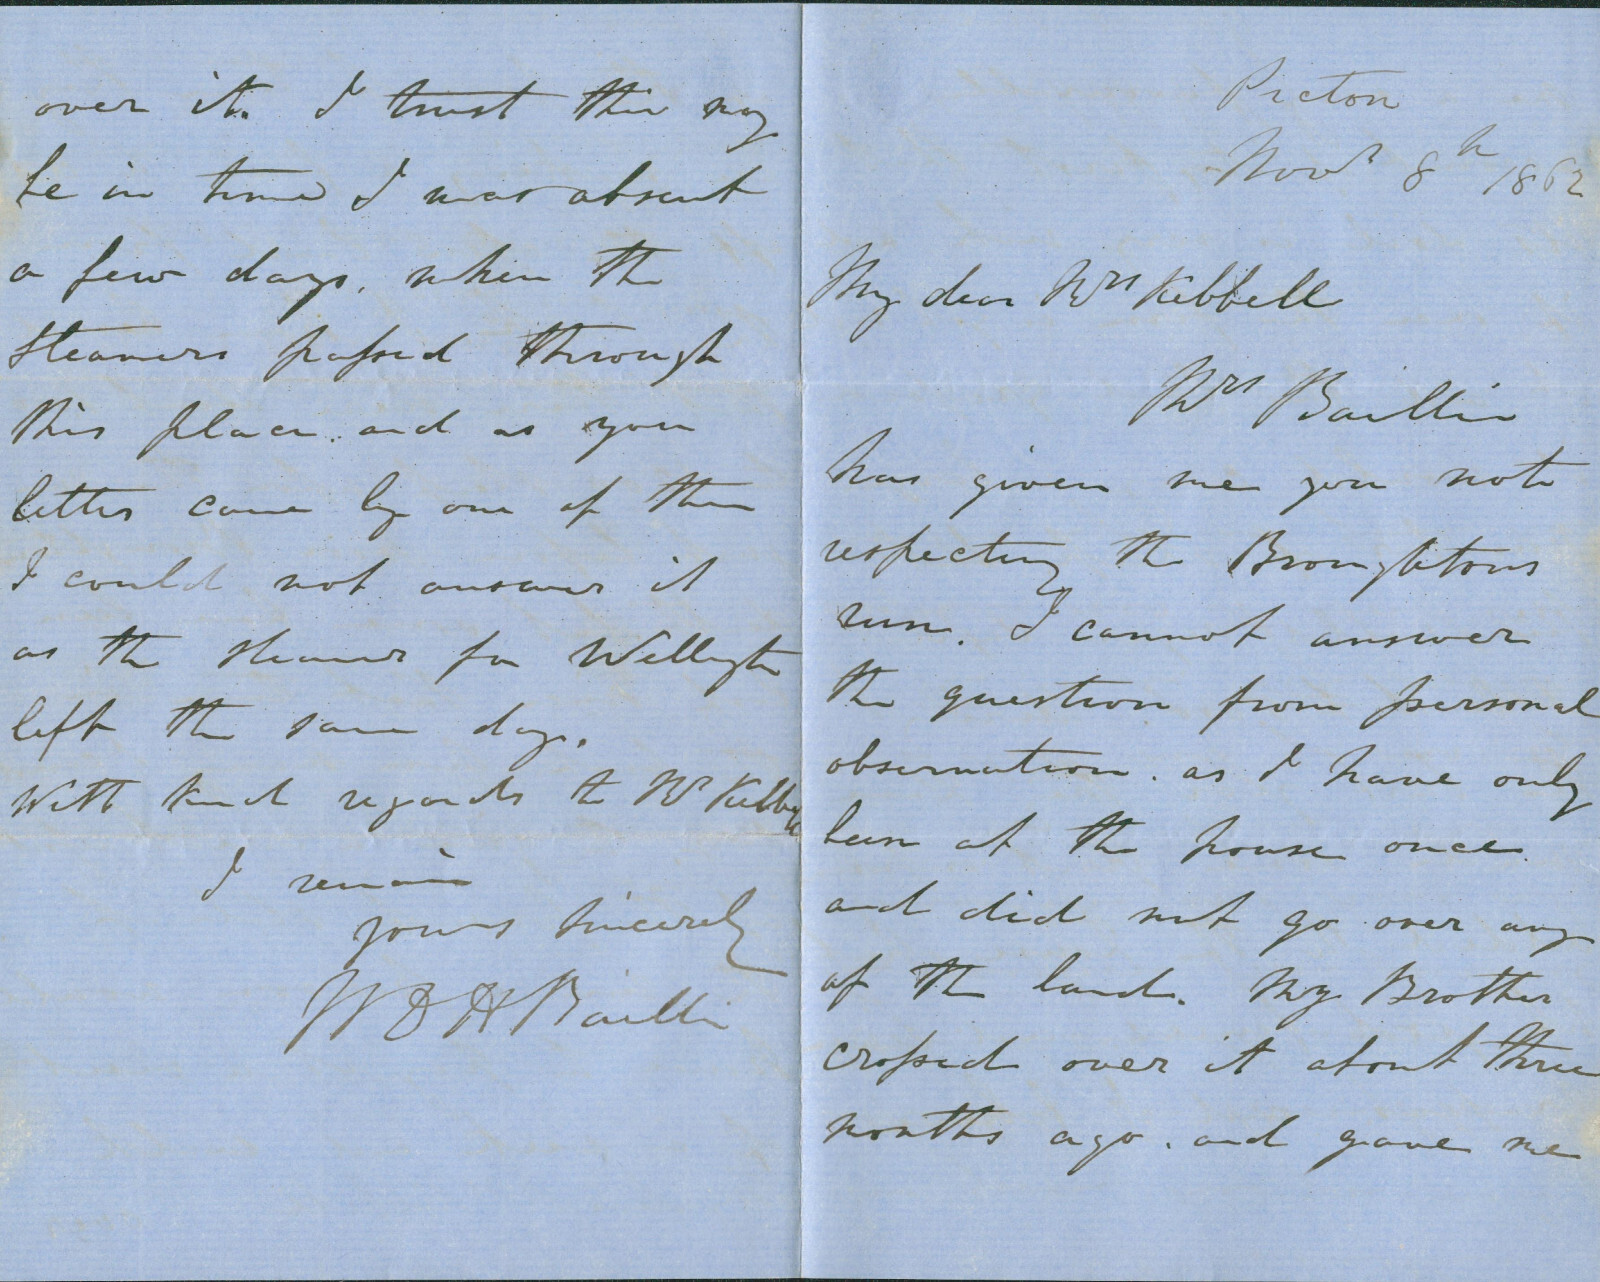 Picton
Novr 8th 1862
My dear Mrs Kebbell
Mrs Baillie
has given me your note
respecting the Broughtons
run. I cannot answer
the question from personal
observation. as I have only
been at the house once
and did not go over any
of the land. My Brother
crossed over it about three
months ago. and gave me
over it. I trust this may
be in time I was absent
a few days, when the
Steamers passed through
this place. and as your
letter came by one of them
I could not answer it
as the steamer for Wellington
left the same day.
With kind regards to Mr Kebbell
I remain
yours sincerely
W D H Baillie